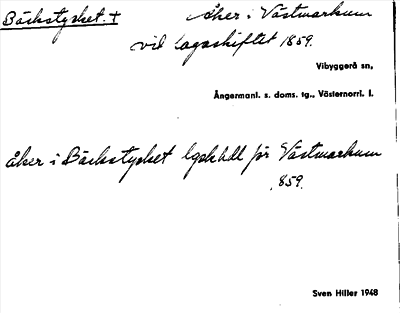 Bäckstycket. +
Åker i Västmarkum
vid lagaskiftet 1859.
Vibyggerå sn,
Ångermanl. s. doms. tg., Västernorrl. l.
åker i Bäckstycket lgskhdl för Västmarkum
1859.
Sven Hiller 1948